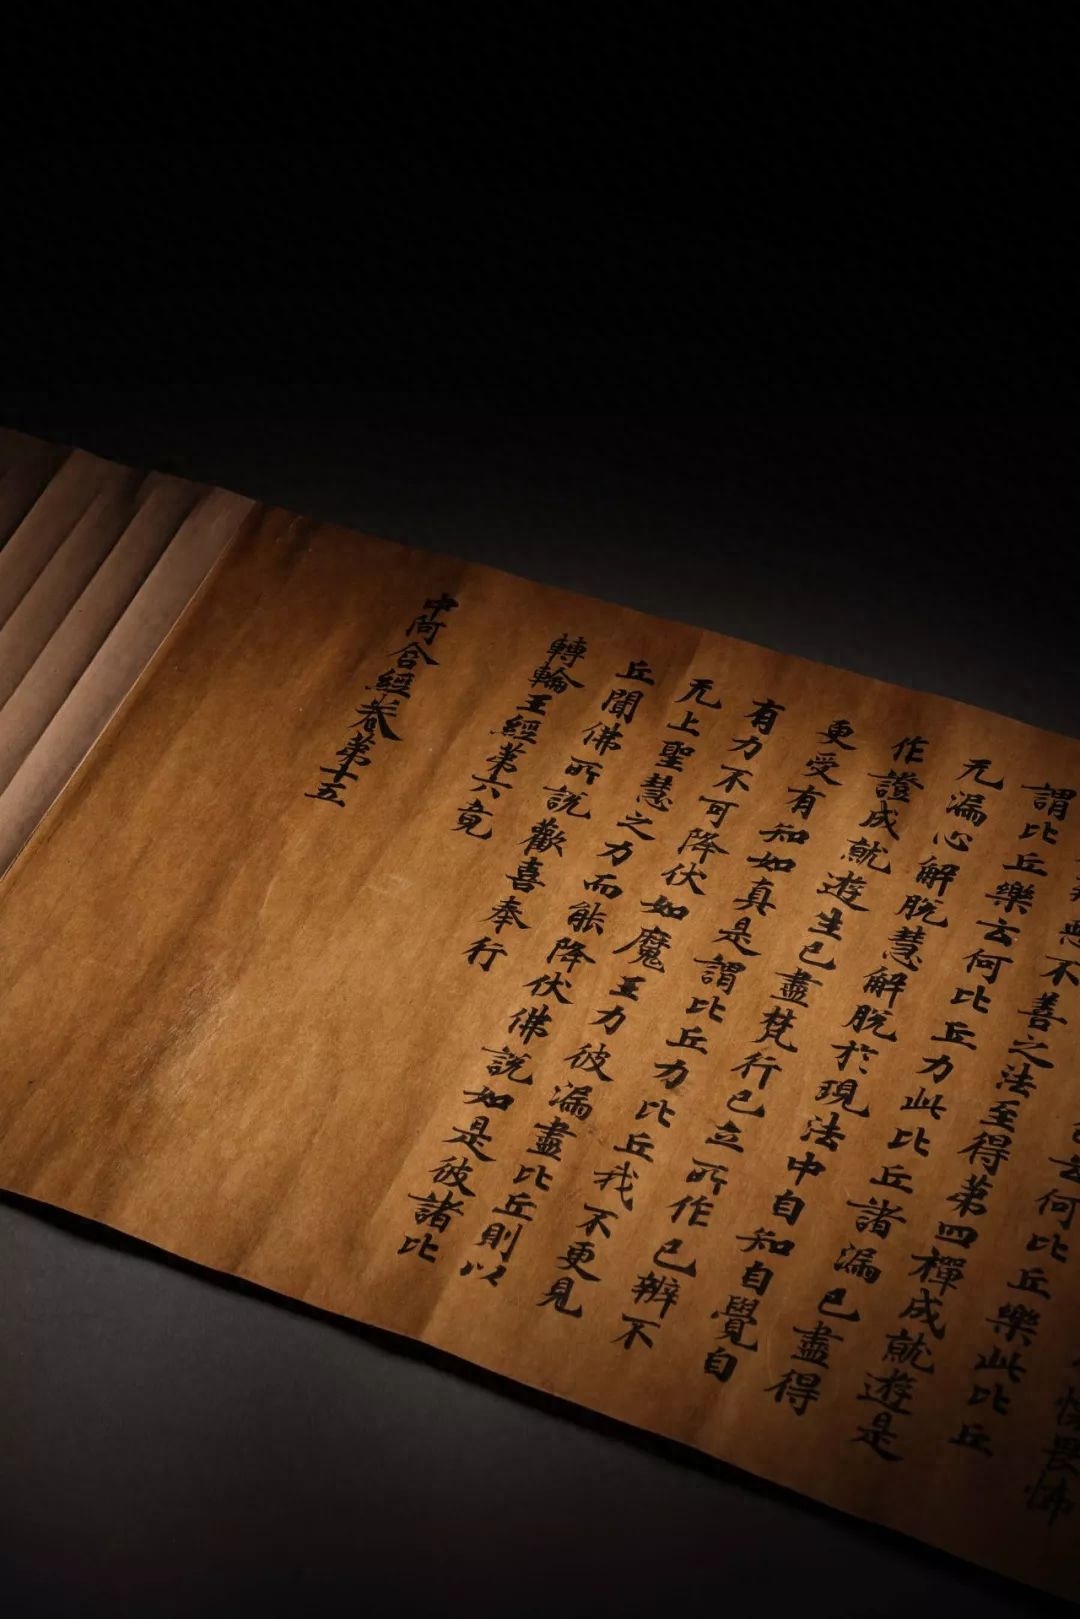 畏怖
云何比丘樂此比丘
惡不善之法至得第四禪成就遊是
謂比丘樂云何比丘力此比丘諸漏已盡得
无漏心解脫慧解脫於現法中自知自覺自
作證成就遊生已盡梵行已立所作已辨不
更受有知如真是謂比丘力比丘我不更見
有力不可降伏如魔王力彼漏盡比丘則以
无上聖慧之力而能降伏佛說如是彼諸比
丘聞佛所說歡喜奉行
轉輪王經第六竟
中阿含經卷第十五